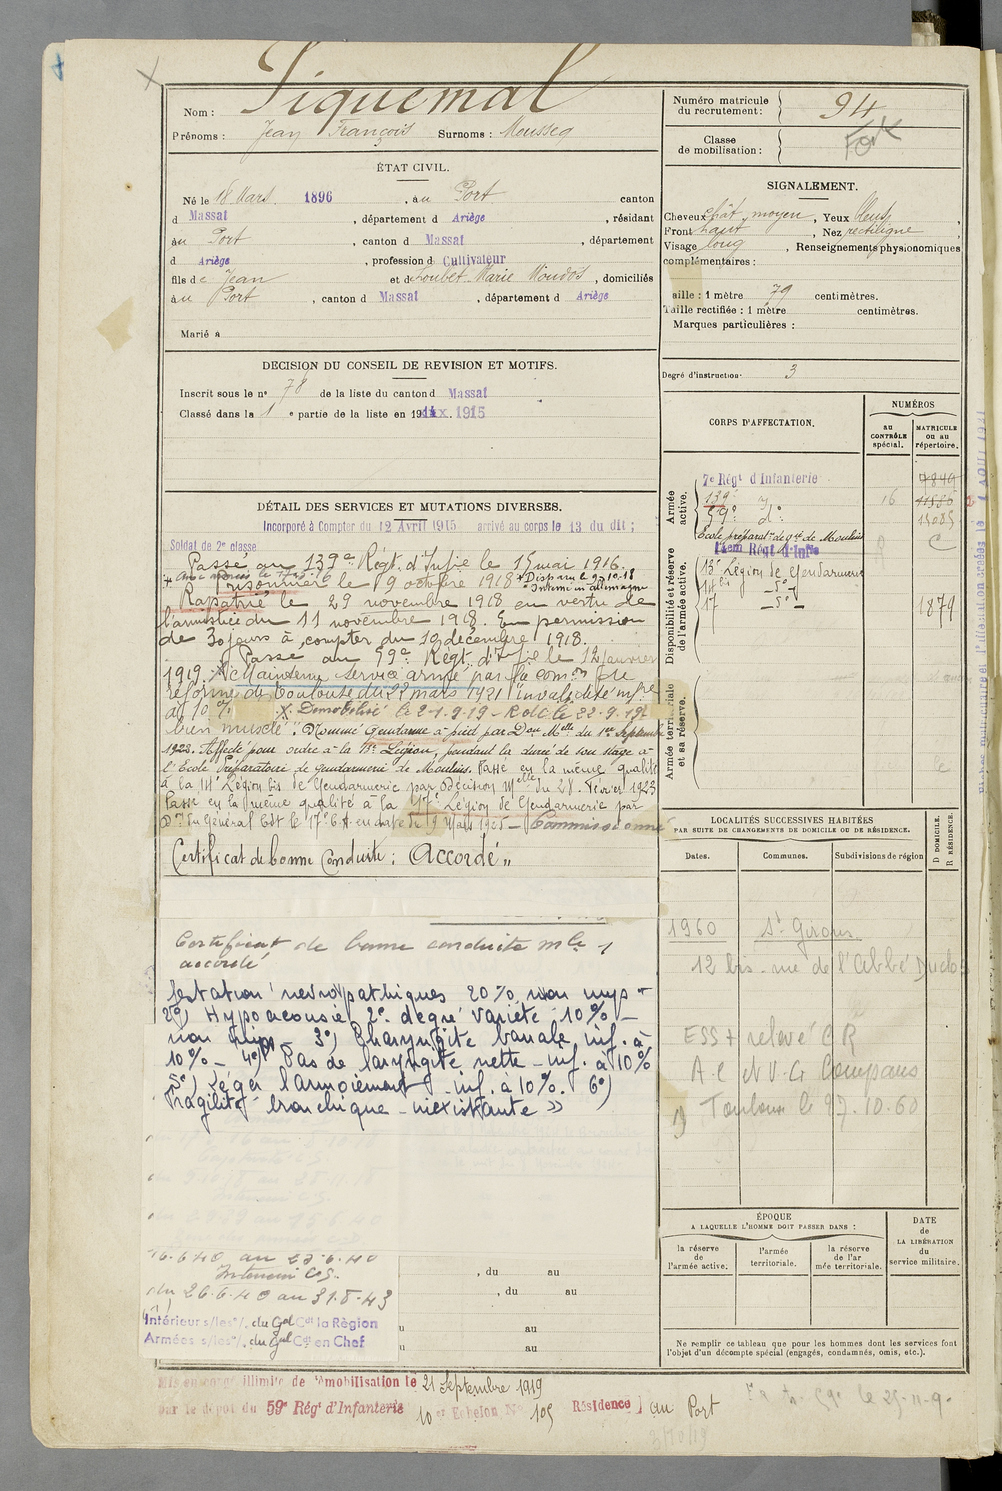 Nom : Piquemal
Prénoms : Jean François Surnoms : Mousseq
ÉTAT CIVIL.
Né le 18 Mars 1896, au Port canton
d Massat, département d Ariège, résidant
au Port, canton d Massat, département
d Ariège, profession d Cultivateur
fils de Jean et de Loubet Marie, domiciliés
au Port, canton d Massat, département d Ariège
Marié à
DECISION DU CONSEIL DE REVISION ET MOTIFS.
Inscrit sous le n° 78 de la liste du canton d Massat
Classé dans la 1e partie de la liste en 1915
DÉTAIL DES SERVICES ET MUTATIONS DIVERSES.
Incorporé à Compter du 12 Avril 1915 arrivé au corps le 13 du dit ;
Soldat de 2e classe
Passé au 139e Régt. d'Infie le 15 mai 1916.
Prisonnier le 9 octobre 1918 + Disparu le 9-10-18
Interné en Allemagne
Rapatrié le 29 novembre 1918 en vertu de
l'armistice du 11 novembre 1918. En permission
de 30 jours à compter du 19 décembre 1918.
Passé au 59e Régt. d'Infie le 12 janvier
1919. Maintenu service armé par la comon de
réforme de Toulouse du 22 mars 1921 "invalidité infre
à 10 % X Démobilisé le 21.9.19 - RdC le 22.9.19
bien musclé". Nommé Gendarme à pied par Don Melle du 1er Septembre
1922. Affecté pour ordre à la 13e Légion, pendant la durée de son stage à
l'École Préparatoire de gendarmerie de Moulins. Passé en la même qualité
à la 14e Légion bis de Gendarmerie par décision Melle du 28 Février 1923
Passé en la même qualité à la 17e Légion de Gendarmerie par
Don du Général Cdt le 17e C.A. en date du 9 Mars 1925 - Commissionné
Certificat de bonne Conduite : Accordé „
Certificat de bonne conduite mle
accordé
2°) Hypoacousie 2e degré variété 10 % -
3°) Pharyngite banale inf. à
10 % - 4°) Pas de laryngite nette - inf. à 10 %
5°) Léger larmoiement - inf. à 10 %. 6°)
Fragilité bronchique - inexistante »
16.6.40 au 25.6.40
Intérieur C.S.
du 26.6.40 au 31.8.43
Intérieur s/les °/. du Gal Cdt la Région
Armées s/les °/. du Gal Cdt en Chef
, du au
, du au
u au
u au
Mis en congé illimité de démobilisation le 21 Septembre 1919
par le dépôt du 59e Régt d'Infanterie 10er Echelon N° 105 Résidence au Port
59e le 25-11-9
Numéro matricule
du recrutement : 94
Classe
de mobilisation :
SIGNALEMENT.
Cheveux chât. moyen, Yeux bleus,
Front haut, Nez rectiligne
Visage long, Renseignements physionomiques
complémentaires :
Taille : 1 mètre 79 centimètres.
Taille rectifiée : 1 mètre centimètres.
Marques particulières :
Degré d'instruction 3
CORPS D'AFFECTATION.
NUMÉROS
AU CONTRÔLE spécial.
MATRICULE ou au répertoire.
Armée active.
7e Régt d'Infanterie 7849
139e d° 16 11556
59e d° 15085
École préparatre de gie de Moulins
Disponibilité et réserve de l'armée active.
14em Régt d'Infie
13e Légion de Gendarmerie
14e bis - d° -
17 - d° - 1879
Armée territoriale et sa réserve.
LOCALITÉS SUCCESSIVES HABITÉES
PAR SUITE DE CHANGEMENTS DE DOMICILE OU DE RÉSIDENCE.
Dates. Communes. Subdivisions de région D DOMICILE. R RÉSIDENCE.
1960 St Girons
12 bis rue de l'Abbé Duclos
ESS + relevé C R
A.C et V.G Compans
Toulouse le 27.10.60
ÉPOQUE
A LAQUELLE L'HOMME DOIT PASSER DANS :
la réserve de l'armée active.
l'armée territoriale.
la réserve de l'armée territoriale.
DATE de LA LIBÉRATION du service militaire.
Ne remplir ce tableau que pour les hommes dont les services font
l'objet d'un décompte spécial (engagés, condamnés, omis, etc.).